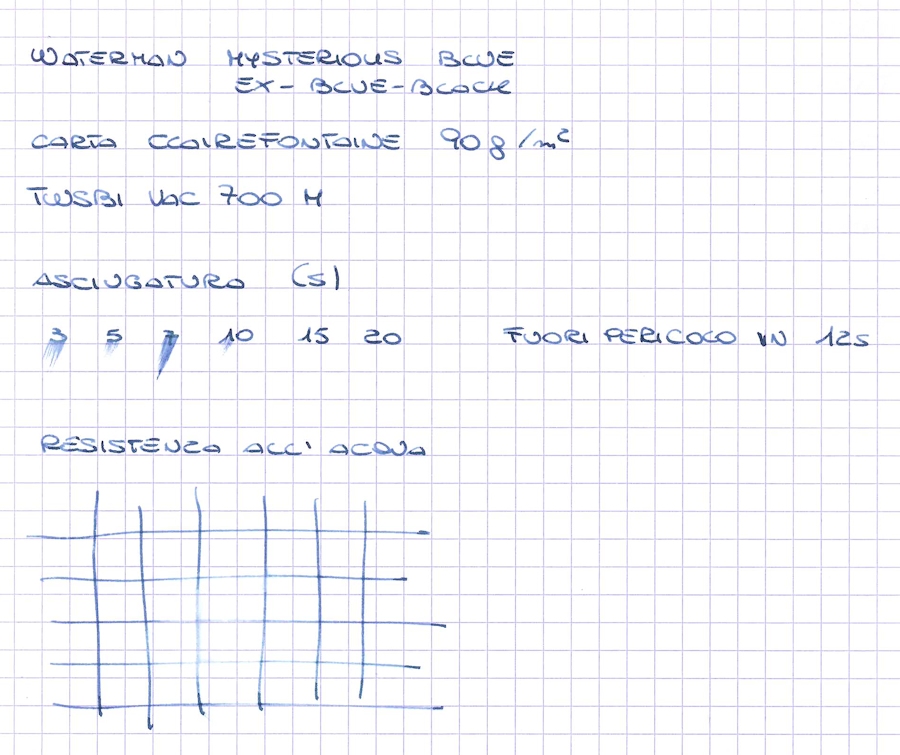 WATERMAN MYSTERIOUS BLUE
EX-BLUE-BLACK
CARTA CLAIREFONTAINE 90g/m²
TWSBI VAC 700 M
ASCIUGATURA (S)
3 5 7 10 15 20 FUORI PERICOLO IN 12s
RESISTENZA ALL'ACQUA